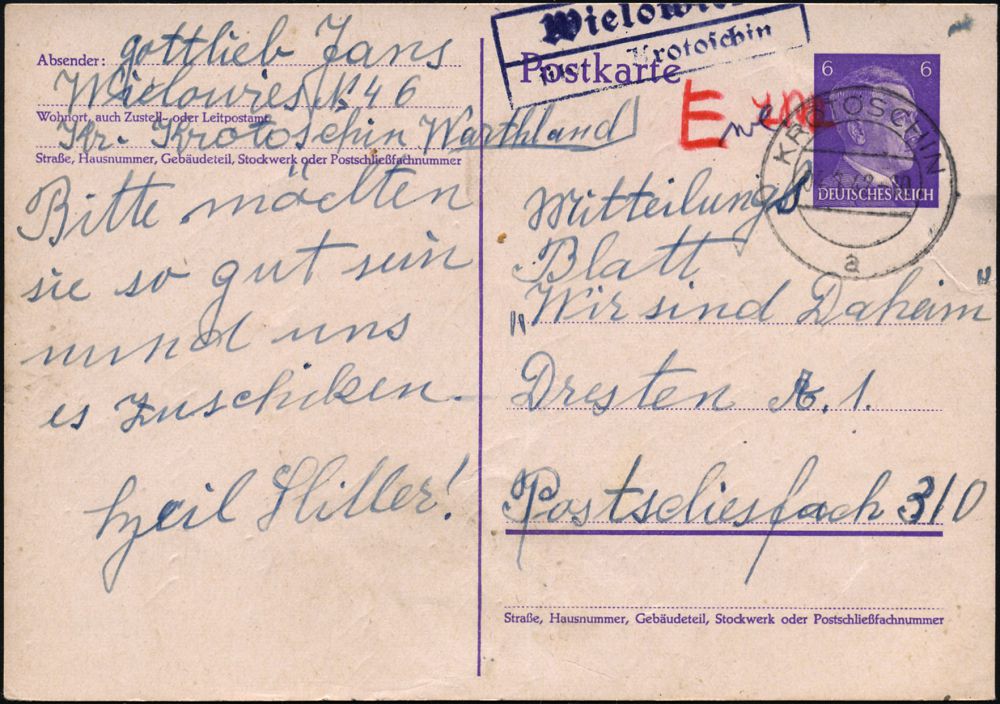 Absender: gottlieb Jans
Wielowies N 46
Wohnort, auch Zustell- oder Leitpostamt
Kr. Krotoschin Warthland
Straße, Hausnummer, Gebäudeteil, Stockwerk oder Postschließfachnummer
Bitte möchten
sie so gut sein
uund uns
es zuschicken.
heil Hitler!
Krotoschin
Postkarte
6 6
DEUTSCHES REICH
KROTOSCHIN
a
Mitteilungs
Blatt
"Wir sind Daheim"
Dresten A. 1.
Postschliesfach 310
Straße, Hausnummer, Gebäudeteil, Stockwerk oder Postschließfachnummer